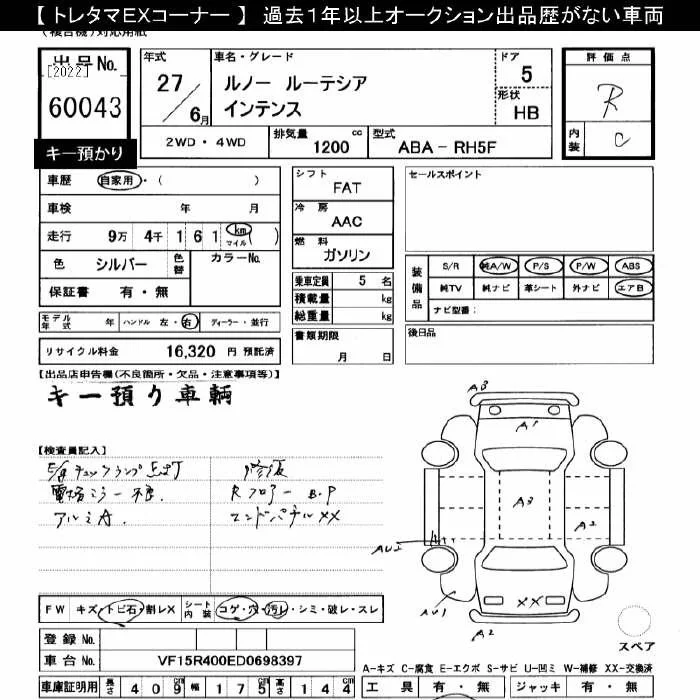 【 トレタマEXコーナー 】 過去1年以上オークション出品歴がない車両
(複合機)対応用紙
出品No.
[2022]
60043
キー預かり
年式
27
6月
車名・グレード
ルノー ルーテシア
インテンス
ドア
5
形状
HB
評価点
R
内装
C
2WD・4WD
排気量
1200 cc
型式
ABA - RH5F
車歴 自家用・( )
車検 年 月
走行 9万 4千 1 6 1 km マイル ( )
色 シルバー 色替 カラーNo.
保証書 有・無
シフト
FAT
冷房
AAC
燃料
ガソリン
乗車定員 5 名
積載量 kg
総重量 kg
書類期限
月 日
セールスポイント
装備品
S/R 純A/W P/S P/W ABS
純TV 純ナビ 革シート 外ナビ エアB
ナビ型番:
後日品
モデル年式 年 ハンドル 左・右 ディーラー・並行
リサイクル料金 16,320 円 預託済
【出品店申告欄(不良箇所・欠品・注意事項等)】
キー預り車輌
【検査員記入】
E/gチェックランプ点灯
電格ミラー不良
アルミA.
修復
Rフロアー B.P
エンドパネルXX
A3
A1
A3
A2
AU2
A
AU1
XX
A2
スペア
FW キズ・トビ石・割レX シート内装 コゲ・穴・汚レ・シミ・破レ・スレ
登録No.
車台No. VF15R400ED0698397
車庫証明用 長さ 409cm 幅 175cm 高さ 144cm
A−キズ C−腐食 E−エクボ S−サビ U−凹ミ W−補修 XX−交換済
工具 有・無 ジャッキ 有・無